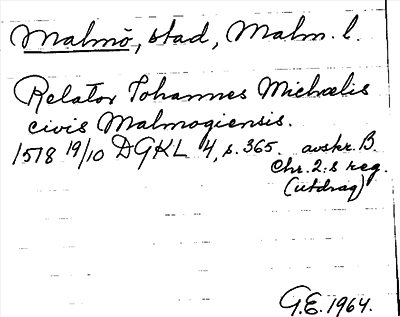 Malmö, stad, Malm. l.
Relator Johannes Michælis
civis Malmogiensis.
1518 19/10 DGKL 4, s. 365. avskr. B.
Chr. 2:s reg.
(utdrag)
G.E. 1964.